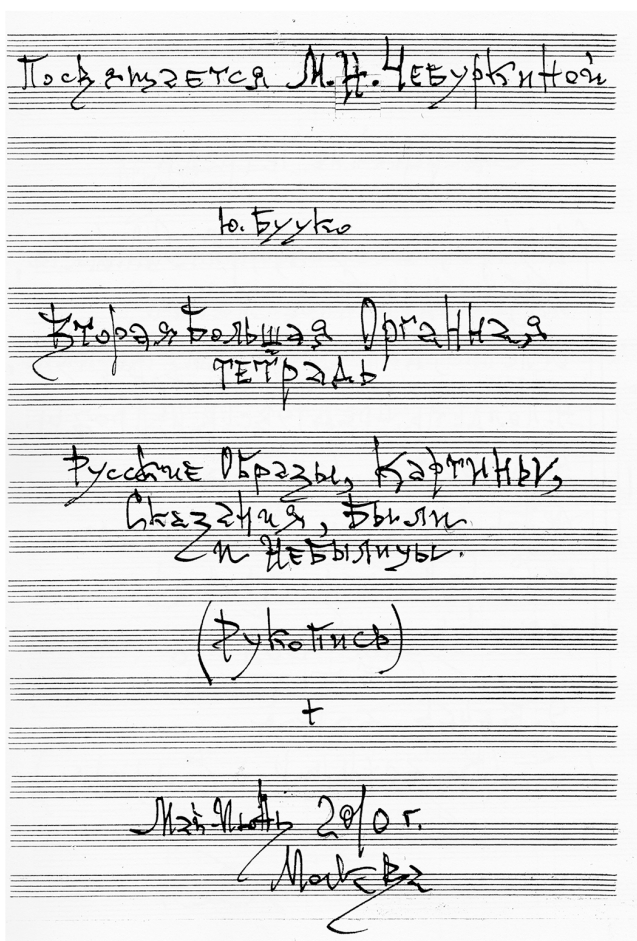 Посвящается М.Н. Чебуркиной
Ю. Буцко
Вторая Большая Органная
тетрадь
Русские Образы, Картины,
Сказания, Были
и Небылицы.
(Рукопись)
+
Май-Июнь 2010 г.
Москва